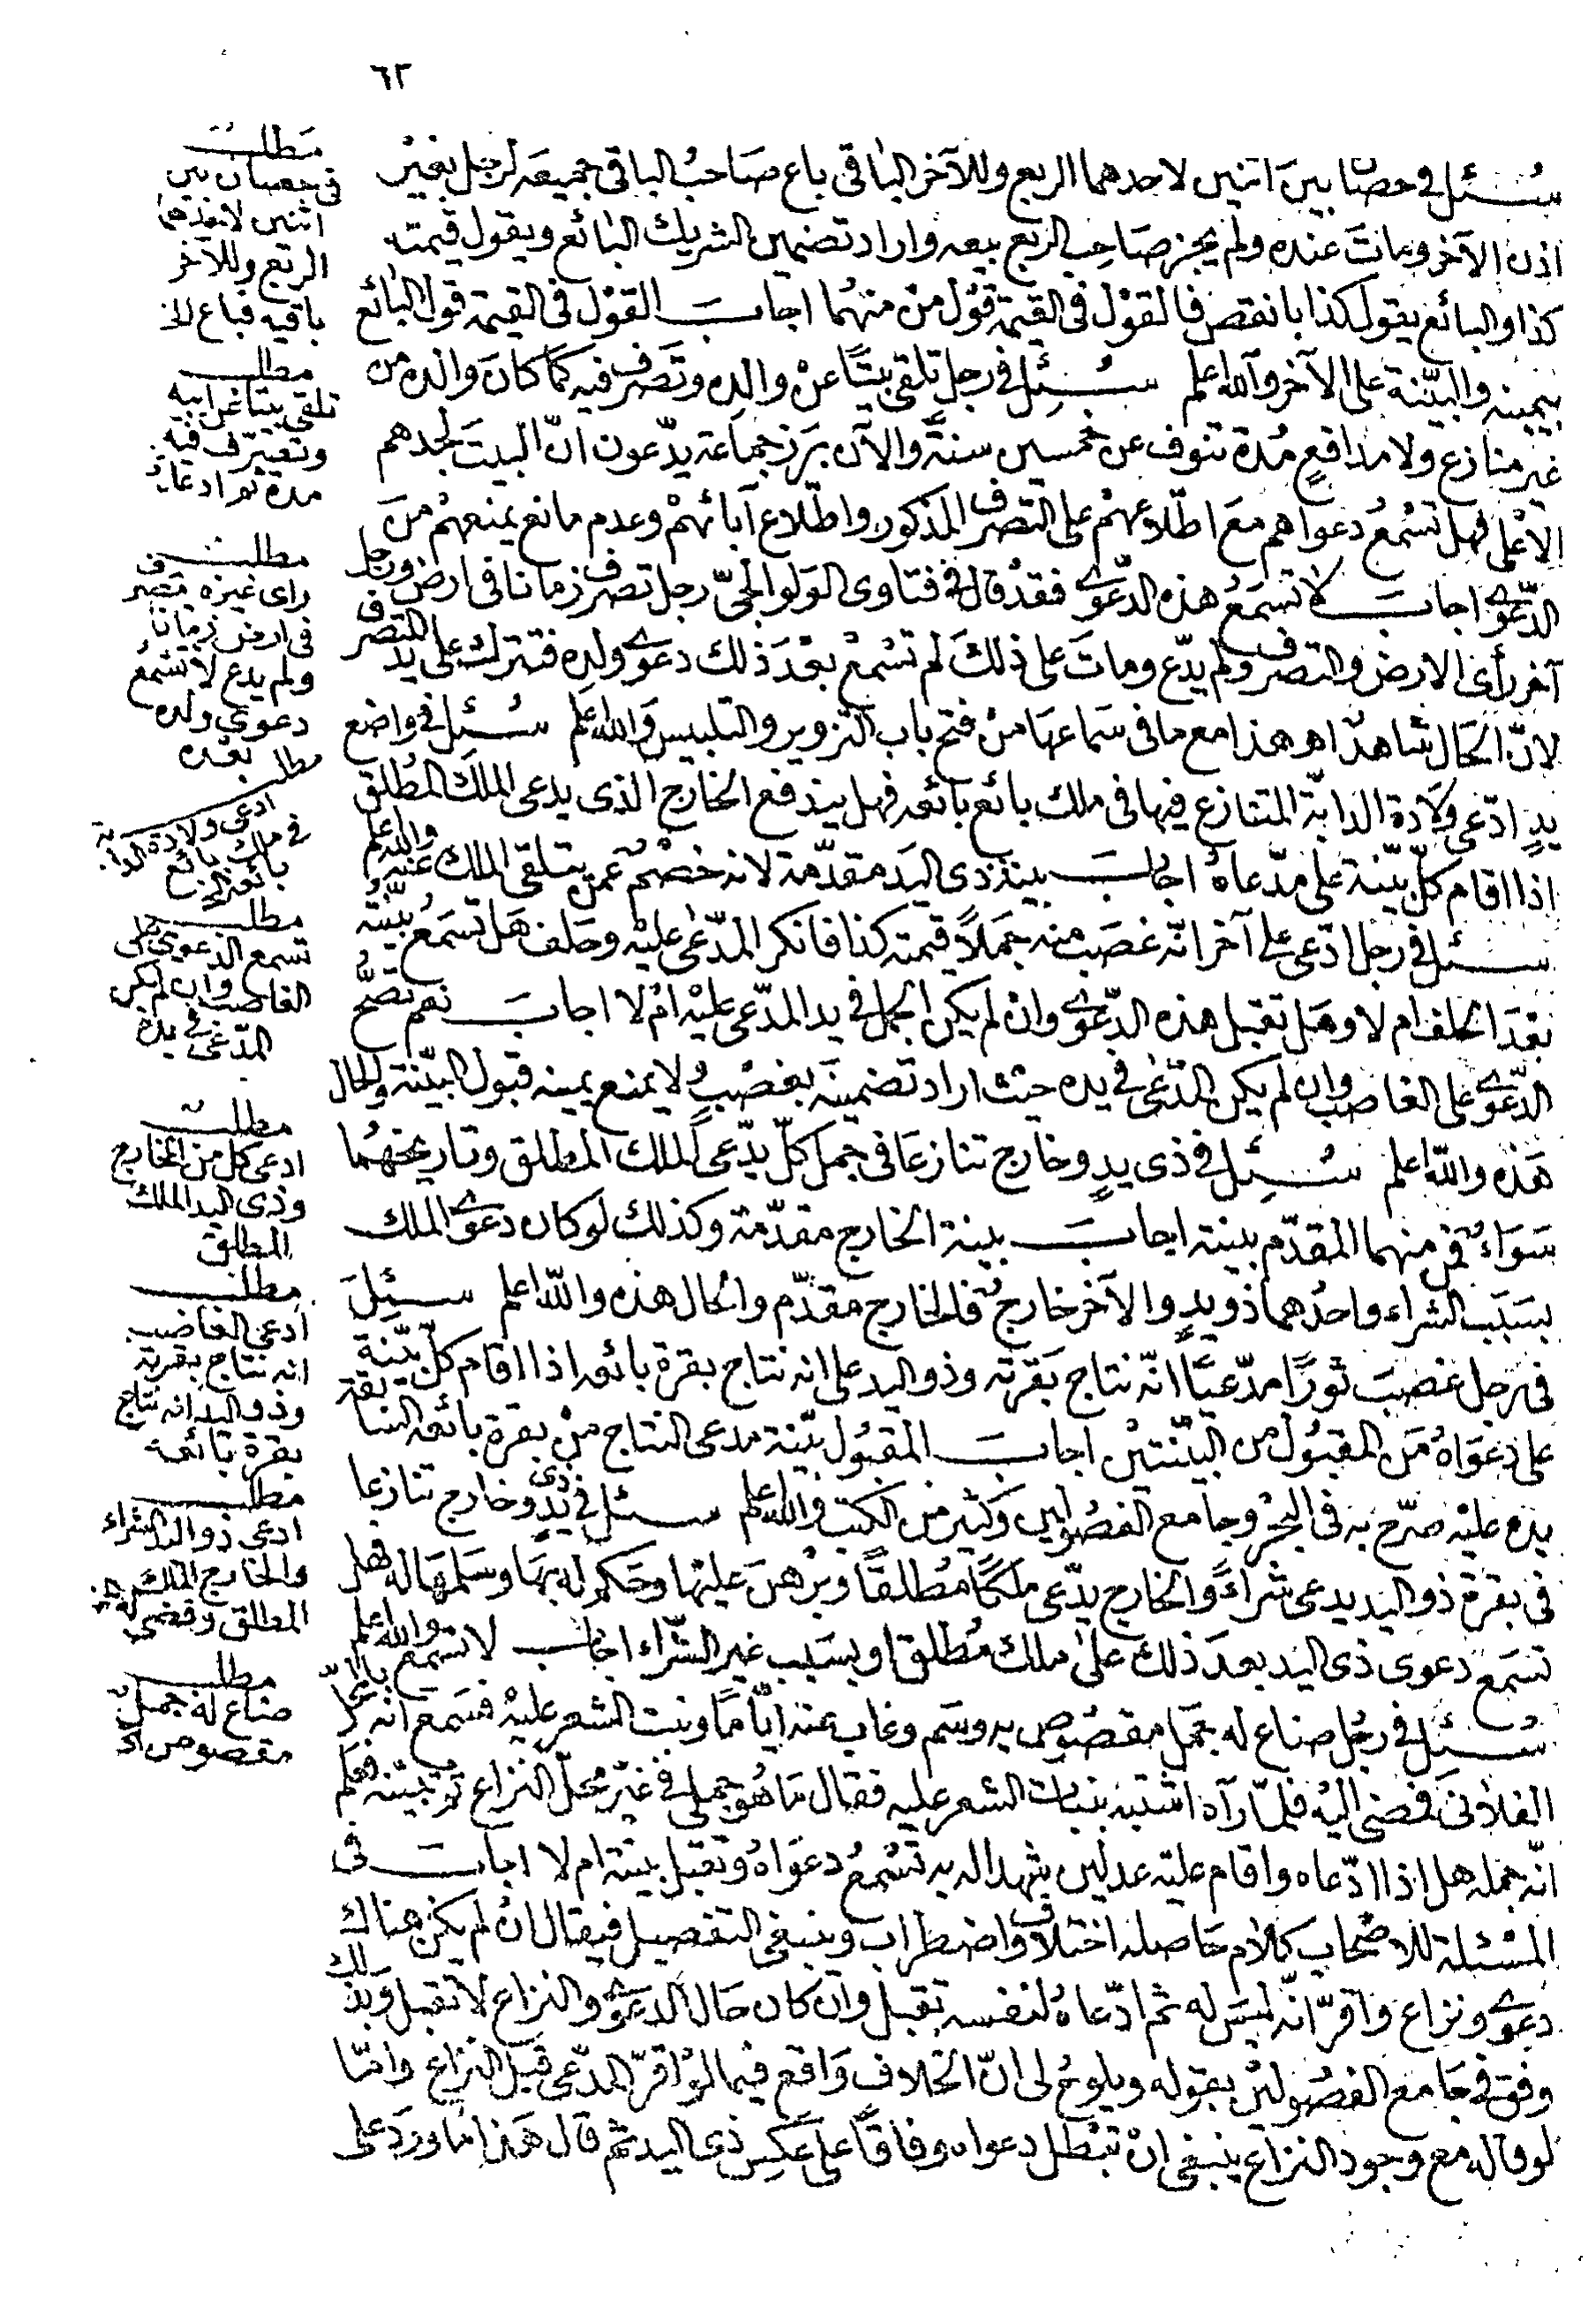 ٦٢
سئل في حصان بين اثنين لاحدهما الربع وللآخر الباقى باع صاحب الباقى جميعه لرجل بغير
اذن الآخر ومات عنده ولم يجز صاحب الربع بيعه واراد تضمين الشريك البائع ويقول قيمته
كذا والبائع يقول كذا بانقص فالقول فى القيمة قول من منهما اجاب القول فى القيمة قول البائع
بيمينه والبيّنة على الآخر والله اعلم سئل في رجل تلقى بيتا عن والده وتصرف فيه كما كان والده من
غير منازع ولا مدافع مدة تنوف عن خمسين سنة والآن برز جماعة يدّعون انّ البيت لجدهم
الاعلى فهل تسمع دعواهم مع اطّلاعهم على التصرف المذكور واطّلاع آبائهم وعدم مانع يمنعهم من
الدّعوى اجاب لا تسمع هذه الدّعوى فقد قال فى فتاوى الولوالجىّ رجل تصرف زمانا فى ارض ورجل
آخر رأى الارض والتصرف ولم يدّع ومات على ذلك لم تسمع بعد ذلك دعوى ولده فتترك على يد المتصرف
لانّ الحال شاهد اهـ هذا مع ما فى سماعها من فتح باب التزوير والتلبيس والله اعلم سئل في واضع
يد ادّعى ولادة الدابّة المتنازع فيها فى ملك بائع بائعه فهل يندفع الخارج الذى يدعى الملك المطلق
اذا اقام كلّ بيّنة على مدّعاه اجاب بينة ذى اليد مقدّمة لانه خصم عمن يتلقى الملك عنه والله اعلم
سئل في رجل ادّعى على آخر انّه غصب منه جملا قيمته كذا فانكر المدّعى عليه وحلف هل تسمع بيّنته
بعد الحلف ام لا وهل تقبل هذه الدّعوى وان لم يكن الجمل في يد المدّعى عليه ام لا اجاب نعم تصحّ
الدّعوى على الغاصب وان لم يكن المدّعى في يده حيث اراد تضمينه بغصب ولا يمنع يمينه قبول البيّنة والحال
هذه والله اعلم سئل في ذى يد وخارج تنازعا فى جمل كلّ يدّعى الملك المطلق وتاريخهما
سواء فمن منهما المقدّم بينته اجاب بينة الخارج مقدّمة وكذلك لو كان دعوى الملك
بسبب الشراء واحدهما ذو يد والآخر خارج فالخارج مقدّم والحال هذه والله اعلم سئل
فى رجل غصب ثورا مدّعيا انّه نتاج بقرته وذو اليد على انه نتاج بقرة بائعه اذا اقام كلّ بيّنة
على دعواه من المقبول من البيّنتين اجاب المقبول بيّنة مدعى النتاج من بقرة بائعه السابقة
يده عليه صرّح به فى البحر وجامع الفصولين وكثير من الكتب والله اعلم سئل في ذى يد وخارج تنازعا
فى بقرة ذو اليد يدعى شراء والخارج يدّعى ملكا مطلقا وبرهن عليها وحكم له بها وسلمها له فهل
تسمع دعوى ذى اليد بعد ذلك على ملك مطلق او بسبب غير الشّراء اجاب لا تسمع والله اعلم
سئل في رجل ضاع له جمل مقصوص به وسم وغاب عنه ايّاما ونبت الشعر عليه فسمع انه بالمحلّ
الفلانى فمضى اليه فلمّا رآه اشتبه بنبات الشعر عليه فقال ما هو جملى فى غير محلّ النزاع ثم تبيّنه فعلم
انّه جمله هل اذا ادّعاه واقام عليه عدلين يشهدا له به تسمع دعواه وتقبل بينته ام لا اجاب فى
المسئلة للاصحاب كلام حاصله اختلاف واضطراب وينبغى التفصيل فيقال ان لم يكن هناك
دعوى ونزاع واقرّ انّه ليس له ثم ادّعاه لنفسه تقبل وان كان حال الدعوى والنزاع لا تقبل وبذلك
وفق في جامع الفصولين بقوله ويلوح لى انّ الخلاف واقع فيما لو اقرّ المدّعى قبل النزاع وامّا
لو قاله مع وجود النزاع ينبغى ان تبطل دعواه وفاقا على عكس ذى اليد ثم قال هذا ما ورد على
مطلب
فى حصان بين
اثنين لاحدهما
الربع وللآخر
باقيه فباع الخ
مطلب
تلقى بيتا عن ابيه
وتصرّف فيه
مدة ثم ادعاه
مطلب
راى غيره تصرف
فى ارض زمانا
ولم يدع لا تسمع
دعوى ولده
بعده
مطلب
ادعى ولادة الدابة
فى ملك بائع
بائعه الخ
مطلب
تسمع الدعوى على
الغاصب وان لم يكن
المدّعى في يده
مطلب
ادعى كل من الخارج
وذى اليد الملك
المطلق
مطلب
ادعى الغاصب
انه نتاج بقرته
وذو اليد انه نتاج
بقرة بائعه
مطلب
ادعى ذو اليد الشراء
والخارج الملك
المطلق وقضى له
مطلب
ضاع له جمل
مقصوص الخ